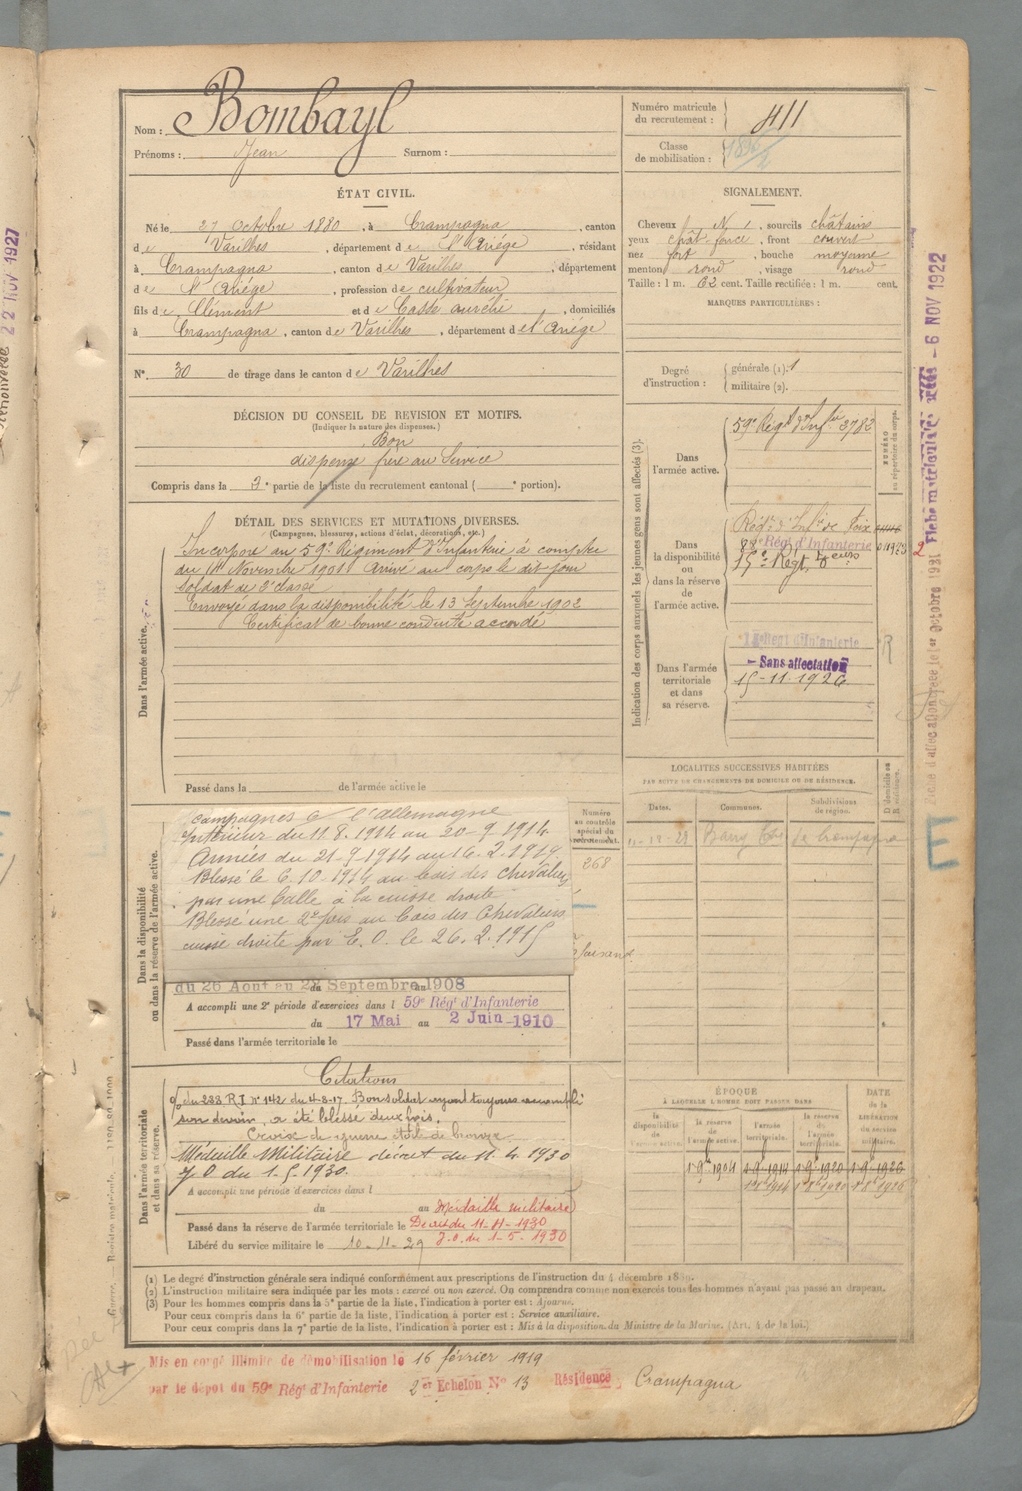 Nom : Bombayl
Prénoms : Jean Surnom :
Numéro matricule
du recrutement : 411
Classe
de mobilisation :
ÉTAT CIVIL.
Né le 27 Octobre 1880, à Crampagna, canton
de Varilhes, département de l'Ariége, résidant
à Crampagna, canton de Varilhes, département
de l'Ariége, profession de cultivateur
fils de Clément et de Casse aurélie, domiciliés
à Crampagna, canton de Varilhes, département de l'Ariége
N° 30 de tirage dans le canton de Varilhes
DÉCISION DU CONSEIL DE REVISION ET MOTIFS.
(Indiquer la nature des dispenses.)
Bon
dispense frère au Service
Compris dans la 2e partie de la liste du recrutement cantonal ( e portion).
SIGNALEMENT.
Cheveux N, sourcils châtains
yeux chât foncé, front couvert
nez fort, bouche moyenne
menton rond, visage rond
Taille : 1 m. 62 cent. Taille rectifiée : 1 m. cent.
MARQUES PARTICULIÈRES :
Degré
d'instruction :
générale (1). 1
militaire (2).
DÉTAIL DES SERVICES ET MUTATIONS DIVERSES.
(Campagnes, blessures, actions d'éclat, décorations, etc.)
Dans l'armée active.
Incorporé au 59e Régiment d'Infanterie à compter
du 14 Novembre 1901 Arrivé au corps le dit jour
soldat de 2e classe
Envoyé dans la disponibilité le 13 Septembre 1902
Certificat de bonne conduite accordé
Passé dans de l'armée active le
Indication des corps auxquels les jeunes gens sont affectés (3).
NUMÉRO
au répertoire du corps.
Dans
l'armée active.
59e Régt d'Infrie 3782
Dans
la disponibilité
ou
dans la réserve
de
l'armée active.
Régt d'Infie de Foix
Régt d'Infanterie
15e Régt
Dans l'armée
territoriale
et dans
sa réserve.
Régt d'Infanterie
- Sans affectation
15-11-1926
R
LOCALITÉS SUCCESSIVES HABITÉES
PAR SUITE DE CHANGEMENTS DE DOMICILE OU DE RÉSIDENCE.
Dates.
Communes.
Subdivisions
de région.
D domicile ou
R résidence.
Dans la disponibilité
ou dans la réserve de l'armée active.
Numéro
au contrôle
spécial du
recrutement.
268
campagnes c l'allemagne
Intérieur du 11.8.1914 au 20-9 1914
Armées du 21-9-1914 au 16.2.1919.
Blessé le 6.10-1914 au bois des chevaliers
par une balle à la cuisse droite
Blessé une 2e fois au Bois des Chevaliers
cuisse droite par E. O. le 26.2.1915
du 26 Aout au 22 Septembre 1908
A accompli une 2e période d'exercices dans l 59e Régt d'Infanterie
du 17 Mai au 2 Juin 1910
Passé dans l'armée territoriale le
Dans l'armée territoriale
et dans sa réserve.
Citations
du 283 R.I N° 142 du 4-8-17. Bon soldat ayant toujours accompli
son devoir, a été blessé deux fois.
Croix de guerre étoile de bronze
Médaille Militaire décret du 11 4 1930
J O du 1.5.1930.
A accompli une période d'exercices dans l
du au
Médaille militaire
Passé dans la réserve de l'armée territoriale le
Décret du 11-4-1930
J.O. du 1-5-1930
Libéré du service militaire le 10-11-29
ÉPOQUE
À LAQUELLE L'HOMME DOIT PASSER DANS
la
disponibilité
de
l'armée active.
la réserve
de
l'armée active.
l'armée
territoriale.
la réserve
de
l'armée
territoriale.
DATE
de la
LIBÉRATION
du service
militaire.
1 9bre 1904 1 9bre 1914 1 9bre 1920 1 9bre 1926
(1) Le degré d'instruction générale sera indiqué conformément aux prescriptions de l'instruction du 4 décembre 1889.
(2) L'instruction militaire sera indiquée par les mots : exercé ou non exercé. On comprendra comme non exercés tous les hommes n'ayant pas passé au drapeau.
(3) Pour les hommes compris dans la 5e partie de la liste, l'indication à porter est : Ajourné.
Pour ceux compris dans la 6e partie de la liste, l'indication à porter est : Service auxiliaire.
Pour ceux compris dans la 7e partie de la liste, l'indication à porter est : Mis à la disposition du Ministre de la Marine. (Art. 4 de la loi.)
Mis en congé illimité de démobilisation le 16 février 1919
par le dépôt du 59e Régt d'Infanterie 2e Echelon N° 13 Résidence : Crampagna
22 NOV 1927
- 6 NOV 1922
E